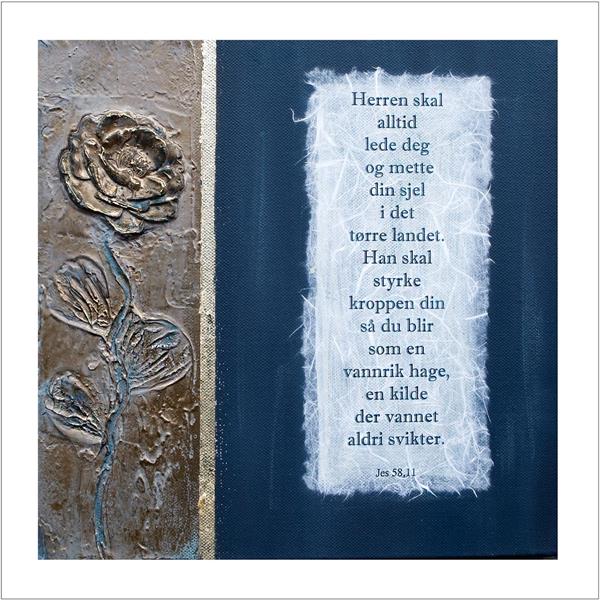 Herren skal
alltid
lede deg
og mette
din sjel
i det
tørre landet.
Han skal
styrke
kroppen din
så du blir
som en
vannrik hage,
en kilde
der vannet
aldri svikter.
Jes 58,11